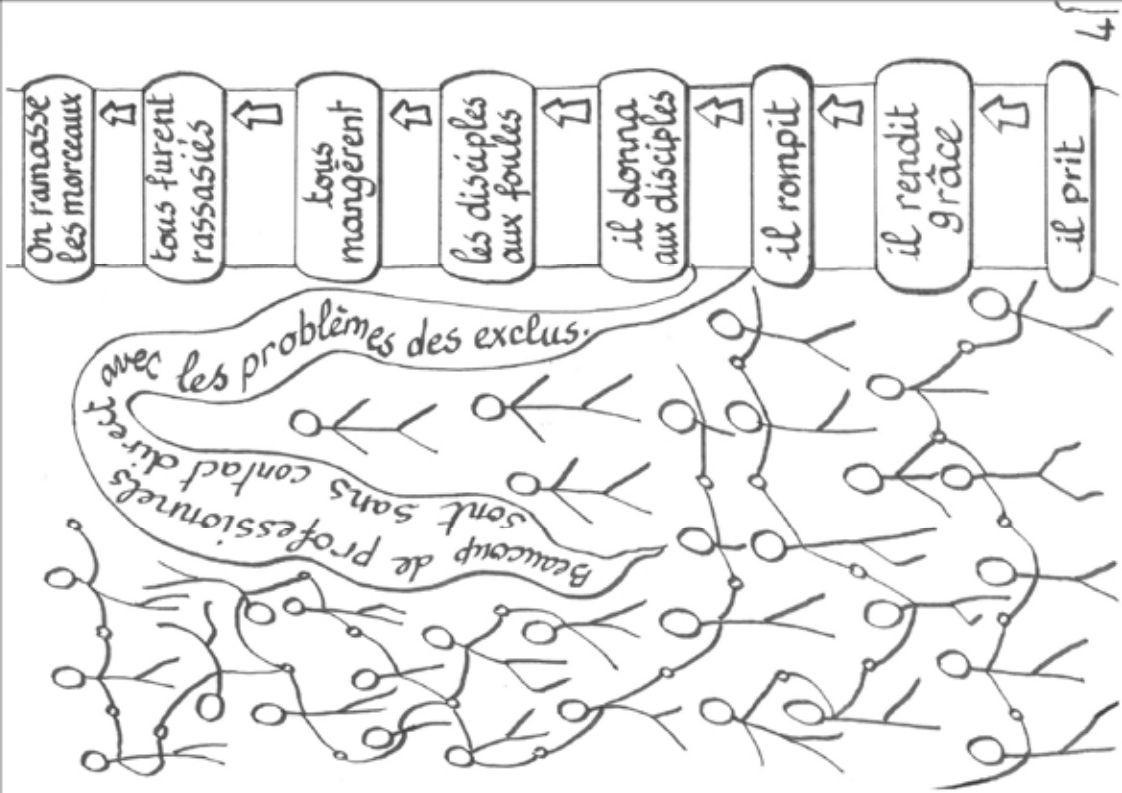 On ramasse
les morceaux
tous furent
rassasiés
tous
mangèrent
les disciples
aux foules
il donna
aux disciples
il rompit
il rendit
grâce
il prit
Beaucoup de professionnels
sont sans contact direct
avec les problèmes des exclus.
4